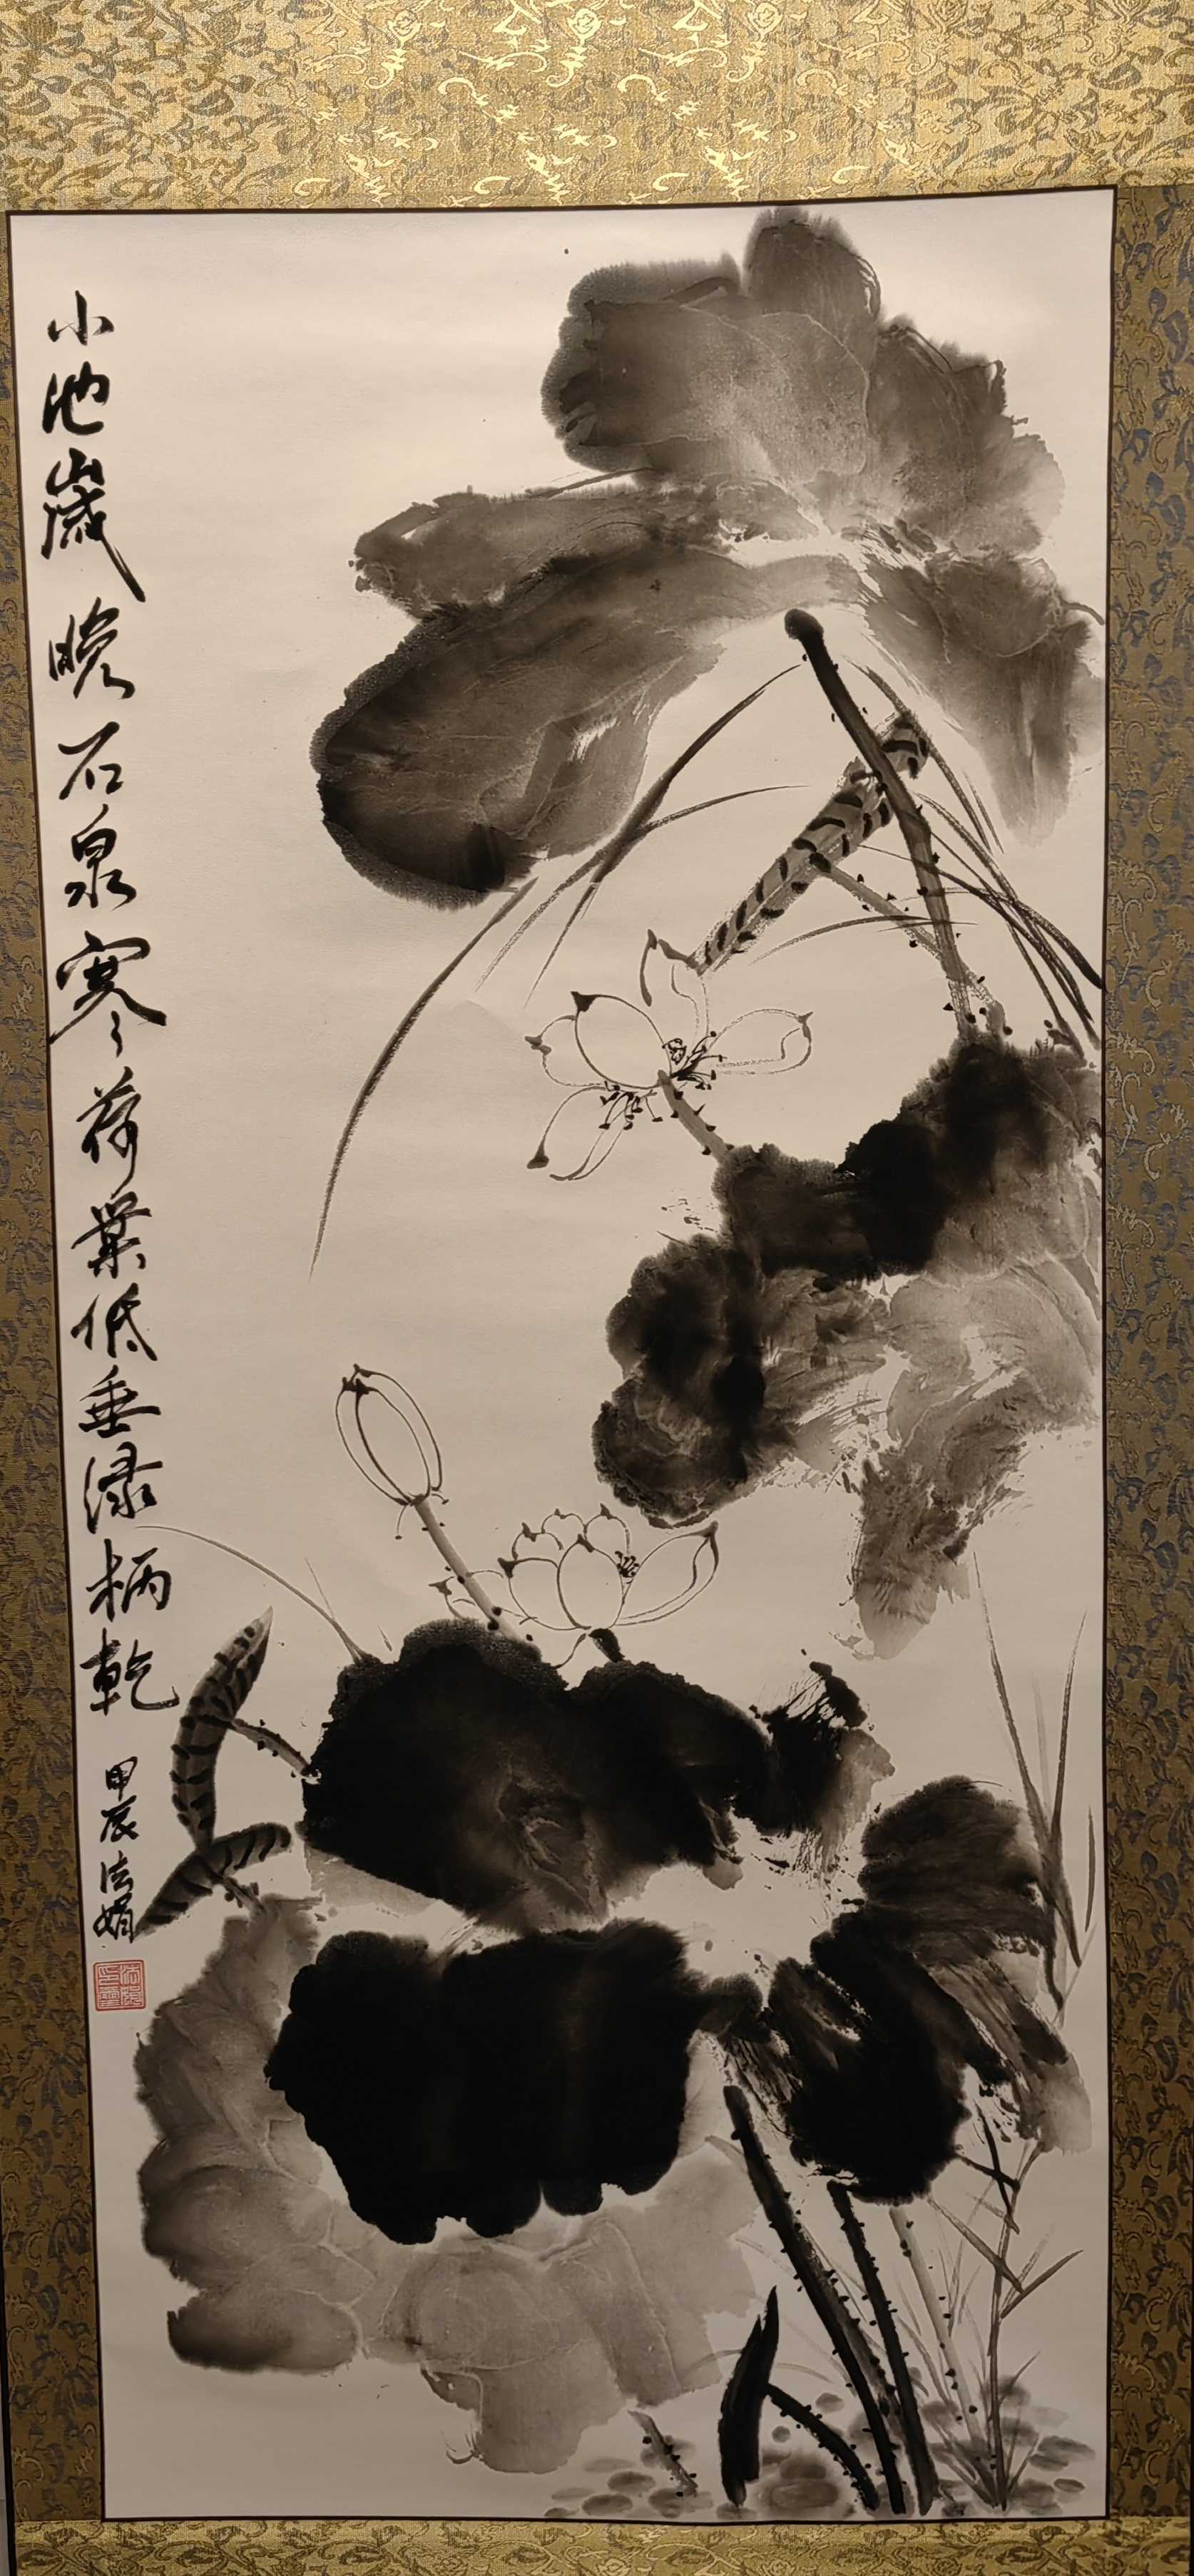 小池歲晚石泉寒荷葉低垂渌柄乾
甲辰法娟